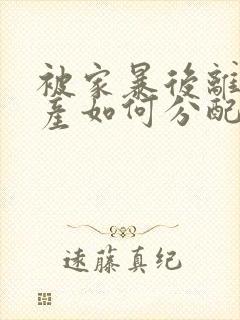 被家暴後離
產如何分配
遠藤真纪